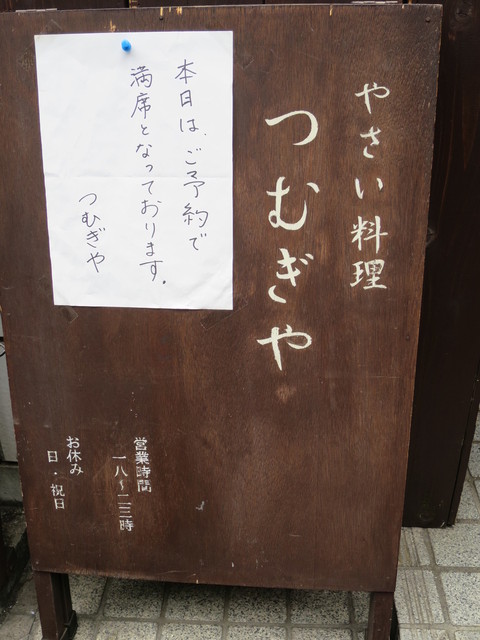 やさい料理
つむぎや
本日は、ご予約で
満席となっております。
つむぎや
営業時間
一八〜二三時
お休み
日・祝日